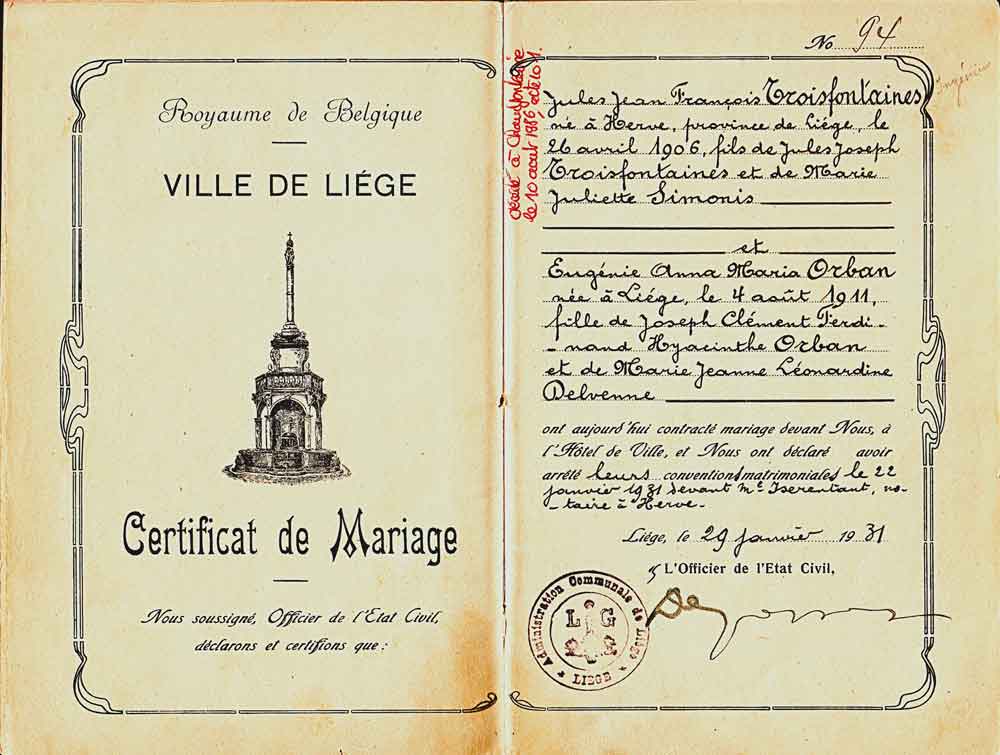 Royaume de Belgique
VILLE DE LIÉGE
Certificat de Mariage
Nous soussigné, Officier de l'Etat Civil,
déclarons et certifions que :
No 94
Ingénieur
décédé à Chaudfontaine
le 10 août 1986, acte 101.
Jules Jean François Troisfontaines
né à Herve, province de Liége, le
26 avril 1906, fils de Jules Joseph
Troisfontaines et de Marie
Juliette Simonis
et
Eugénie Anna Maria Orban
née à Liége, le 4 août 1911,
fille de Joseph Clément Ferdi-
-nand Hyacinthe Orban
et de Marie Jeanne Léonardine
Delvenne
ont aujourd'hui contracté mariage devant Nous, à
l'Hôtel de Ville, et Nous ont déclaré avoir
arrêté leurs conventions matrimoniales le 22
janvier 1931 devant Me Iserentant, no-
-taire à Herve.
Liége, le 29 janvier 1931
L'Officier de l'Etat Civil,
Administration Communale de Liége
L G
LIEGE